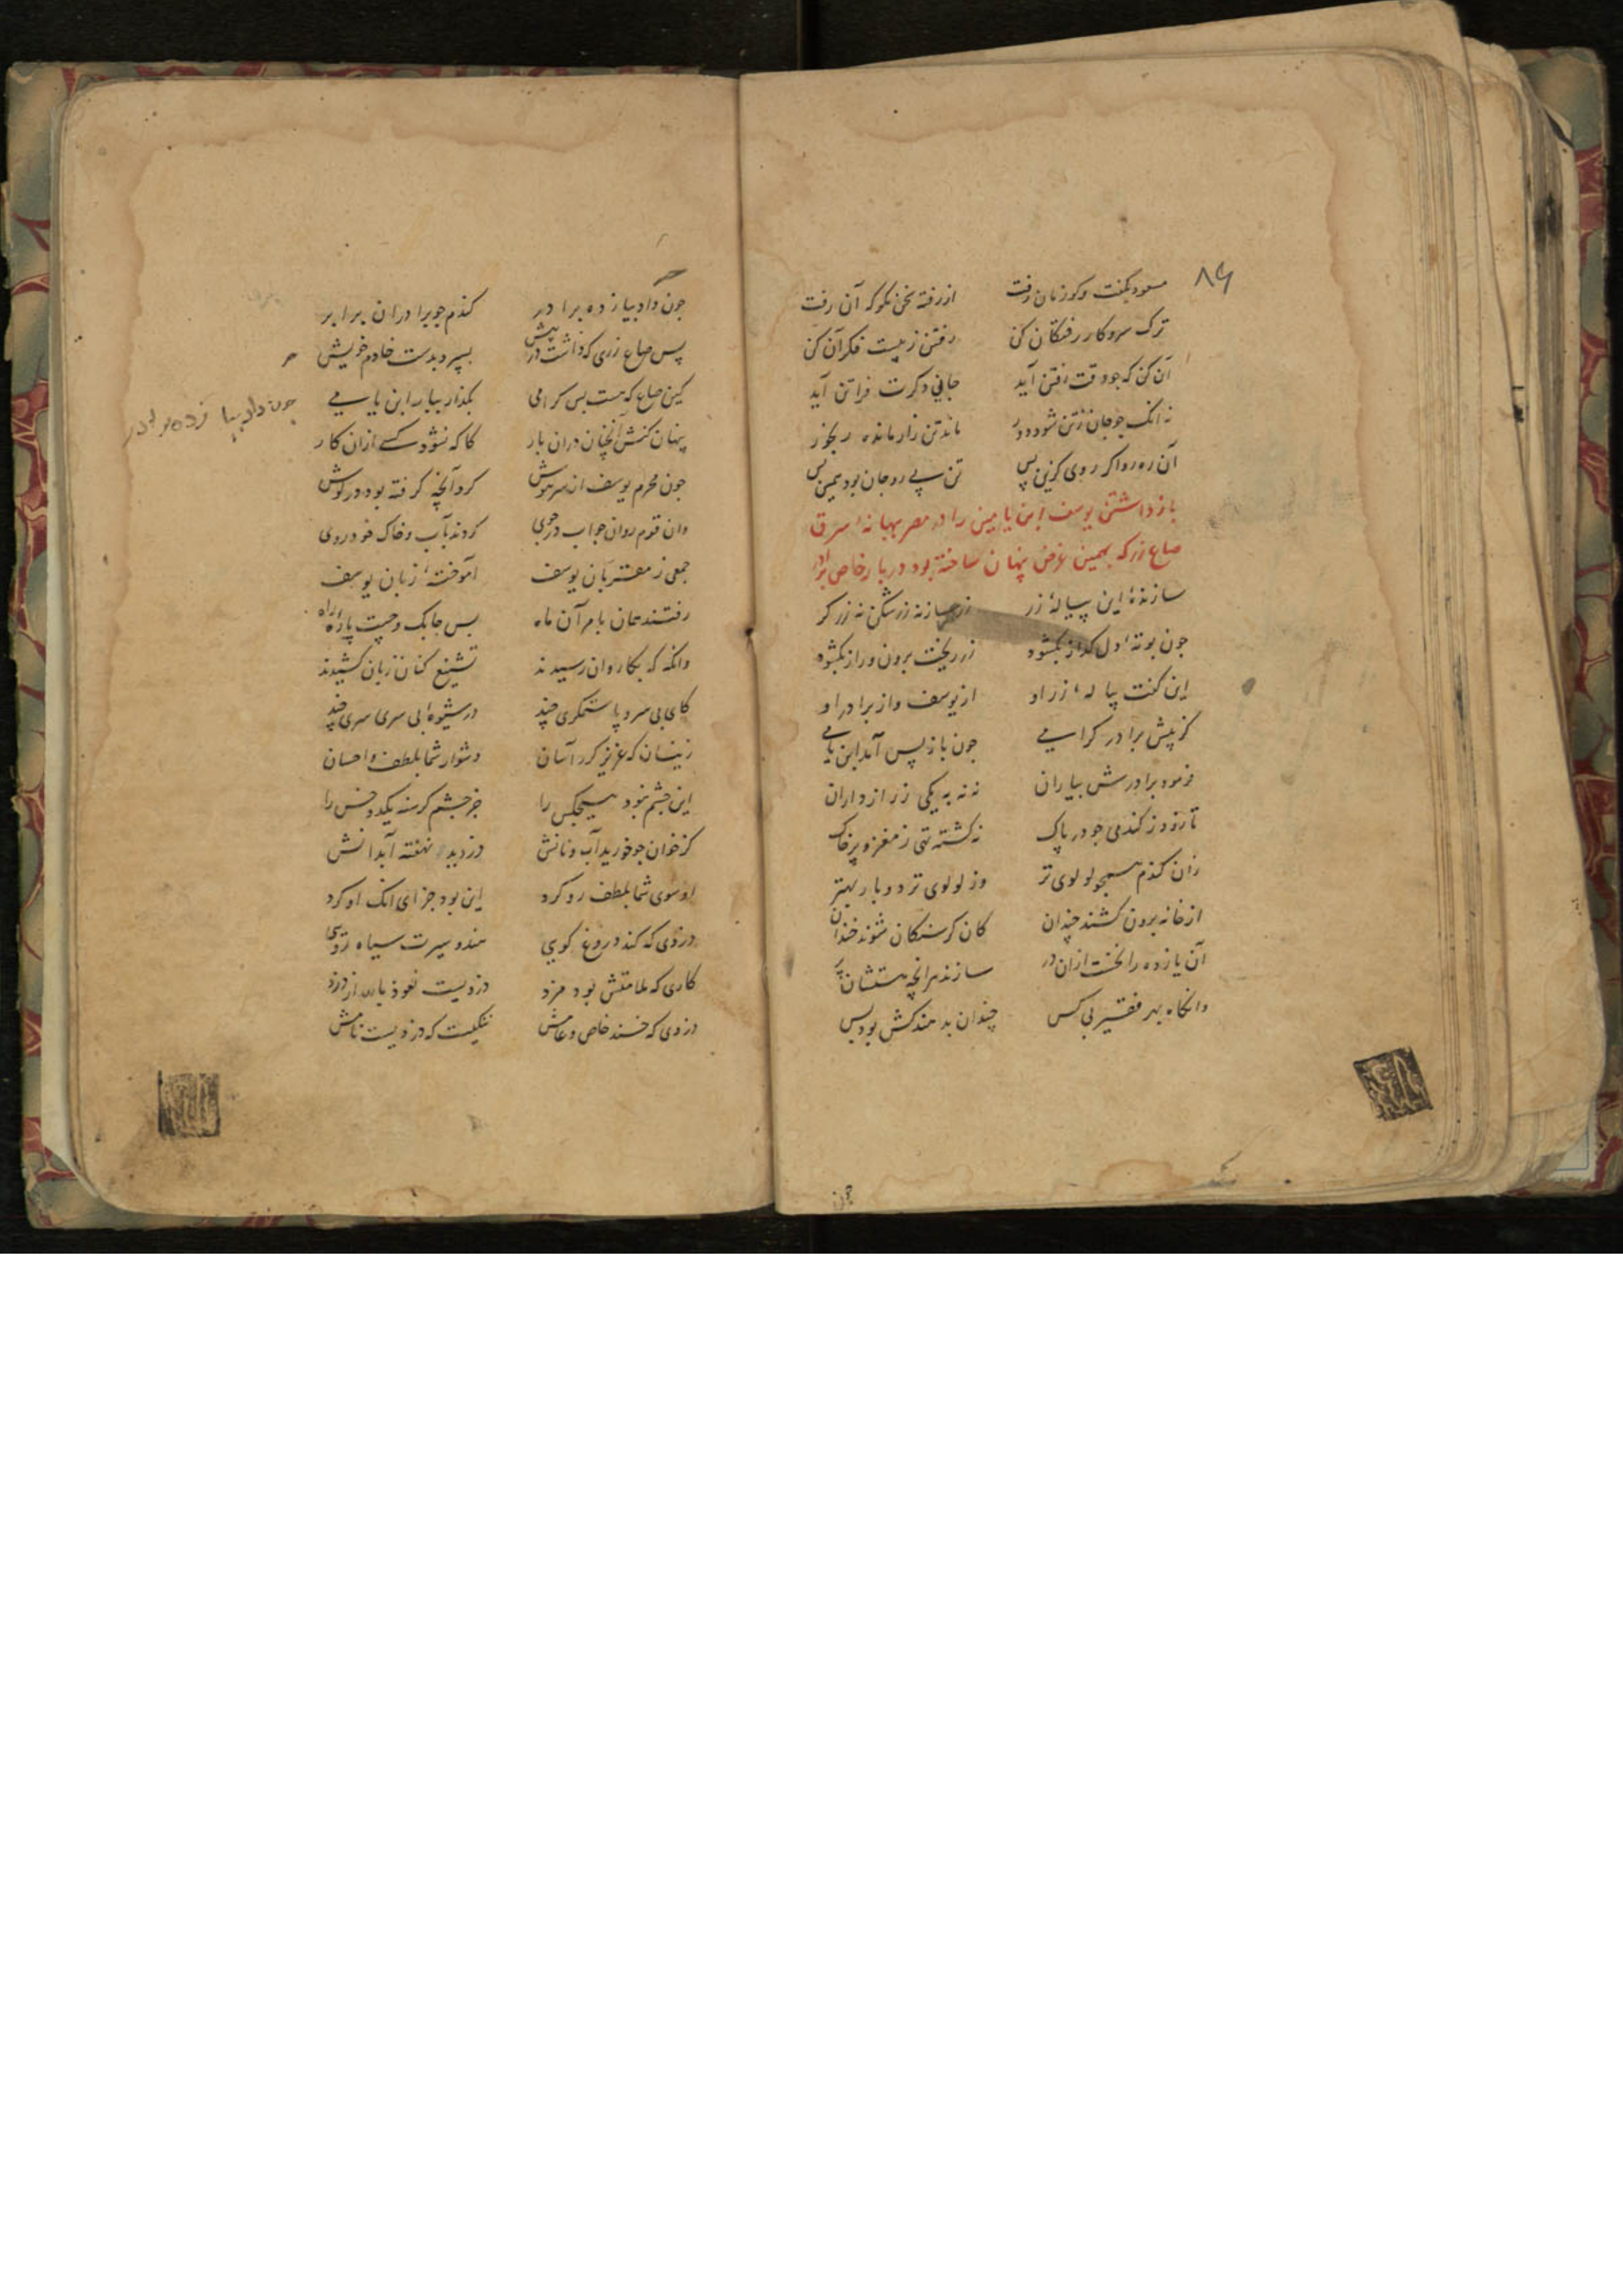 ۸۹
مسعود بگفت و کوزنان رفت از رفته سخن مکو که آن رفت
ترک سر و کار رفتگان کن رفتن ز پیست فکر آن کن
آن کن که جو وقت رفتن آید جانی دکرت فراتن آید
نه انک جو جان زتن شود دور ماند تن زار مانده رنجور
آن ره رو اکر روی کزین پس تن پی رو جان بود همین بس
باز داشتن یوسف ابن یامین را در مصر ببهانهٔ سرق
صاع زر که بهمین غرض پنهان ساخته بود در بار خاص برادر
سازندهٔ این پیالهٔ زر زر سازنه زرشکن نه زرکر
جون بوتهٔ دل کداز بکشود زر ریخت برون و راز بکشود
این گفت پیالهٔ زر او از یوسف و از برادر او
کز پیش برادر کرامی جون باز پس آمد ابن یامی
فرمود برادرش بیاران نه نه به یکی ز رازداران
تا رفت ز گندمی جو در پاک نه کشته تهی ز مغز و پر خاک
زان کندم همجو لولوی تر وز لولوی تر دو بار بهتر
از خانه برون کشند جندان کان کرسنکان شوند خندان
آن یازده را نخست ازان در سازند هر انچه هستشان پر
وانکاه بهر فقیر بی کس جندان بدهند کش بود بس
جون
جون داد بیازده برادر کندم جو برادران برابر
پس صاع زری که داشت در پیش بسپرد بدست خادم خویش
کین صاع که هست بس کرامی بکذار ببار ابن یامی
پنهان کنش آنچنان دران بار کاکه نشود کسے ازان کار
جون محرم یوسف از سر هوش کرد آنچه کرفته بود در کوش
وان قوم روان جو آب در جوی کردند بآب و خاک خود روی
جمعی ز مقربان یوسف آموخته از زبان یوسف
رفتند همان بامر آن ماه بس جابک و جست پاره راه
وانکه که بکاروان رسیدند تشنیع کنان زبان کشیدند
کای بی سر و پا ستمکری چند در شیوهٔ بی سری سری چند
زینسان که عزیز کرد آسان دشوار شما بلطف و احسان
این جشم نبود هیجکس را جز جشم کرسنه یکدو خس را
کز خوان جو خورید آب و نانش دزدید نهفته آبدانش
او سوی شما بلطف رو کرد این بود جزای انک او کرد
دزدی که کند دروغ کویی هندو سیرت سیاه رویی
کاری که ملامتش بود مزد دزدیست نعوذ بالله از دزد
دزدی که خسند خاص و عامش ننکیست که دزدیست نامش
جون داد بیا زده برادر